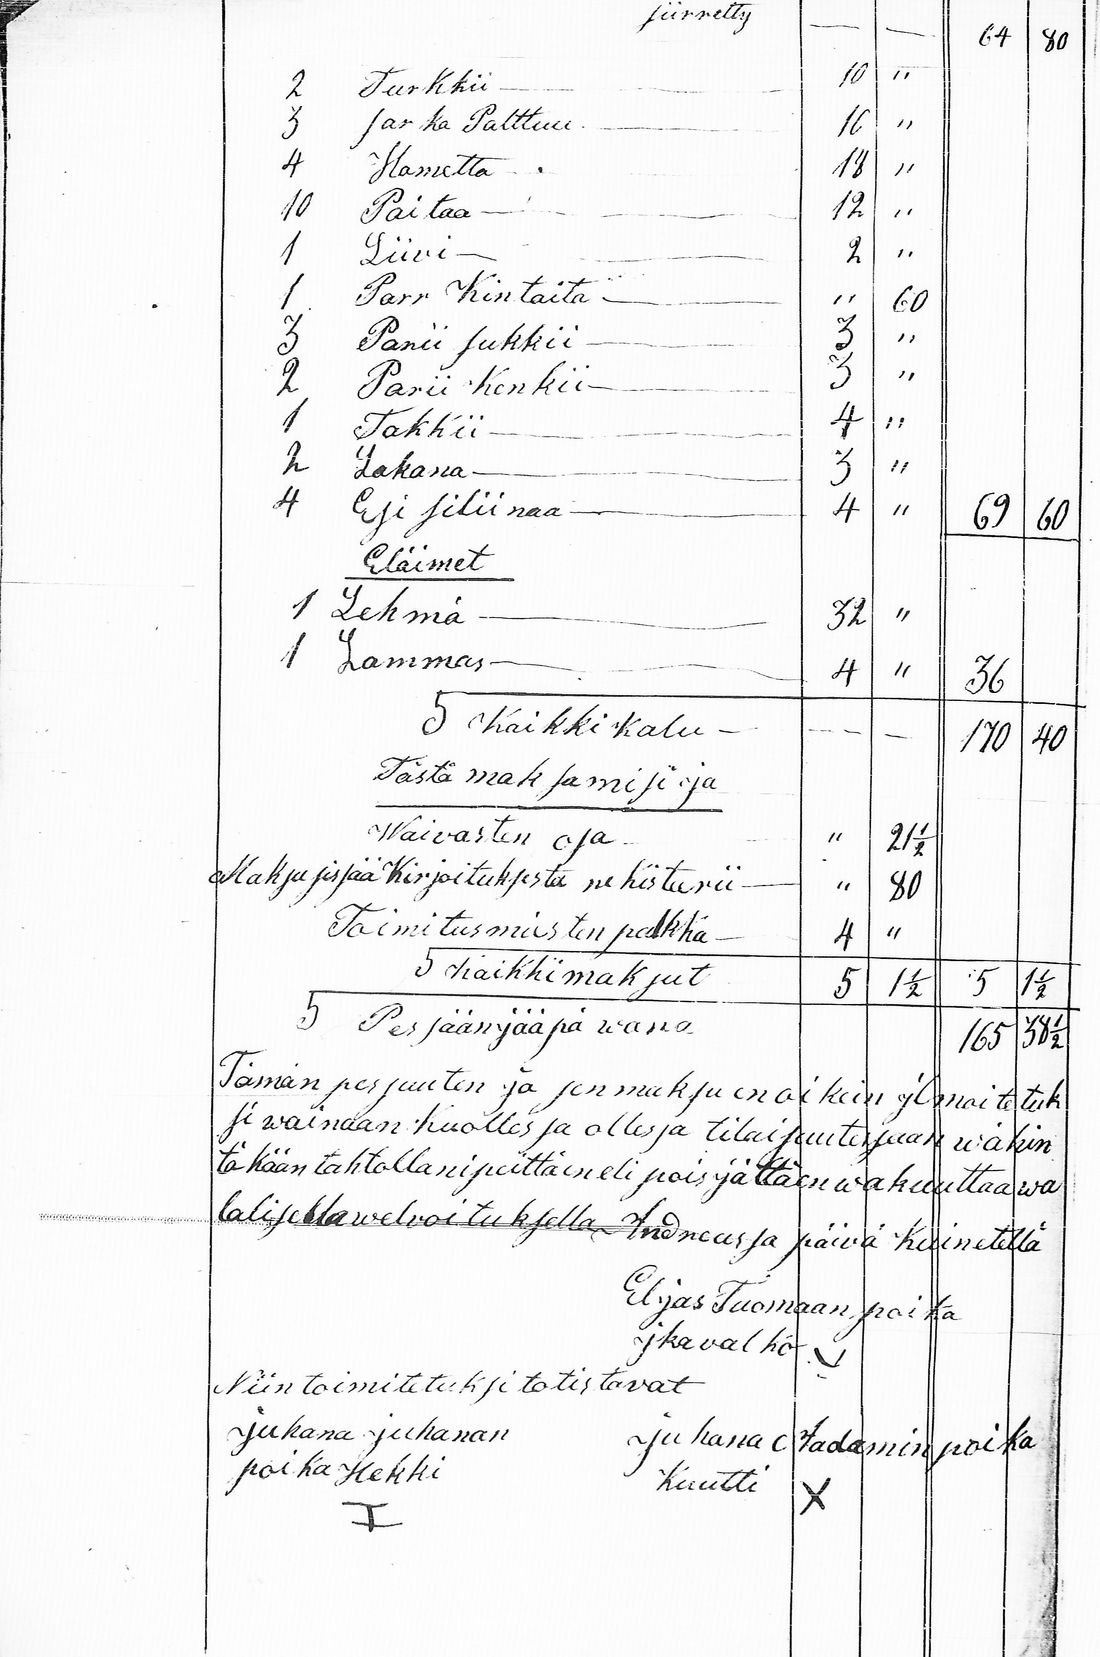 siirretty — — 64 80
2 Turkkii — 10 "
3 sarka Palttuu — 16 "
4 Hametta — 18 "
10 Paitaa — 12 "
1 Liivi — 2 "
1 Parr Kintaita — " 60
3 Parii sukkii — 3 "
2 Parii Kenkii — 3 "
1 Takkii — 4 "
2 Lakana — 3 "
4 Esi siliinaa — 4 " 69 60
Eläimet
1 Lehmä — 32 "
1 Lammas — 4 " 36
S Kaikki kalu — — — 170 40
Tästä maksamisija
Waivasten osa " 21½
Maksu sisää Kirjoituksesta rekisterii — " 80
Toimitusmiesten palkka — 4 "
S kaikki maksut 5 1½ 5 1½
S Pesjäänjääpä wara 165 38½
Tämän pesjuuten ja sen maksu en oikein ylmoitetuk
si wainaan Kuolles ja ollesja tilaisuutesjaan wähin
täkään tahtollani peittäen eli pois jättäen wakuuttaawa
lalisella welvoituksella Andreus ja päivä Kuinetellä
Eljas Tuomaan poika
jkävalko
Niin toimitetuksi totistavat
juhana juhanan
poika Hekki
juhana Aadamin poika
Kuutti X